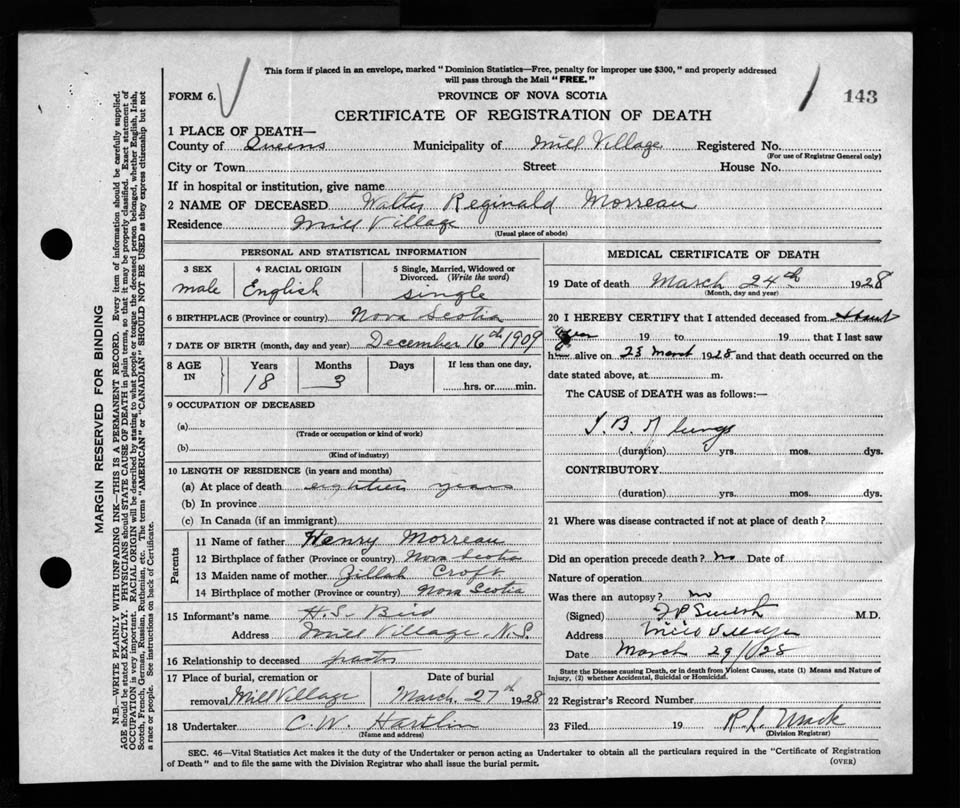 This form if placed in an envelope, marked "Dominion Statistics—Free, penalty for improper use $300," and properly addressed
will pass through the Mail "FREE."
FORM 6.
PROVINCE OF NOVA SCOTIA
143
CERTIFICATE OF REGISTRATION OF DEATH
1 PLACE OF DEATH—
County of Queens Municipality of Mill Village Registered No.
(For use of Registrar General only)
City or Town Street House No.
If in hospital or institution, give name
2 NAME OF DECEASED Walter Reginald Morreau
Residence Mill Village
(Usual place of abode)
PERSONAL AND STATISTICAL INFORMATION
3 SEX 4 RACIAL ORIGIN 5 Single, Married, Widowed or
Divorced. (Write the word)
male English single
6 BIRTHPLACE (Province or country) Nova Scotia
7 DATE OF BIRTH (month, day and year) December 16th 1909
8 AGE IN Years Months Days If less than one day,
18 3 hrs. or min.
9 OCCUPATION OF DECEASED
(a)
(Trade or occupation or kind of work)
(b)
(Kind of industry)
10 LENGTH OF RESIDENCE (in years and months)
(a) At place of death eighteen years
(b) In province
(c) In Canada (if an immigrant)
Parents
11 Name of father Henry Morreau
12 Birthplace of father (Province or country) Nova Scotia
13 Maiden name of mother Zillah Croft
14 Birthplace of mother (Province or country) Nova Scotia
15 Informant's name H.S. Bird
Address Mill Village, N.S.
16 Relationship to deceased pastor
17 Place of burial, cremation or Date of burial
removal Mill Village March 27th 1928
18 Undertaker C.W. Hartlin
(Name and address)
MEDICAL CERTIFICATE OF DEATH
19 Date of death March 24th 1928
(Month, day and year)
20 I HEREBY CERTIFY that I attended deceased from about
year 19 to 19 that I last saw
h alive on 23 March 1928 and that death occurred on
date stated above, at m.
The CAUSE OF DEATH was as follows:—
T.B. of lungs
(duration) yrs. mos. dys.
CONTRIBUTORY
(duration) yrs. mos. dys.
21 Where was disease contracted if not at place of death?
Did an operation precede death? no Date of
Nature of operation
Was there an autopsy? no
(Signed) M.D.
Address Mill Village
Date March 29/28
State the Disease causing Death, or in death from Violent Causes, state (1) Means and Nature of
Injury, (2) whether Accidental, Suicidal or Homicidal.
22 Registrar's Record Number
23 Filed 19
(Division Registrar)
SEC. 46—Vital Statistics Act makes it the duty of the Undertaker or person acting as Undertaker to obtain all the particulars required in the "Certificate of Registration
of Death" and to file the same with the Division Registrar who shall issue the burial permit.
(OVER)
MARGIN RESERVED FOR BINDING
N.B.—WRITE PLAINLY WITH UNFADING INK—THIS IS A PERMANENT RECORD. Every item of information should be carefully supplied.
AGE should be stated EXACTLY. PHYSICIANS should STATE CAUSE OF DEATH in plain terms, so that it may be properly classified. Exact statement of
OCCUPATION is very important. RACIAL ORIGIN will be described by stating to what people or tongue the deceased person belonged, whether English, Irish,
Scotch, French, German, Russian, Ruthenian, etc. The terms "AMERICAN" or "CANADIAN" SHOULD NOT BE USED as they express citizenship but not
a race or people. See instructions on back of Certificate.